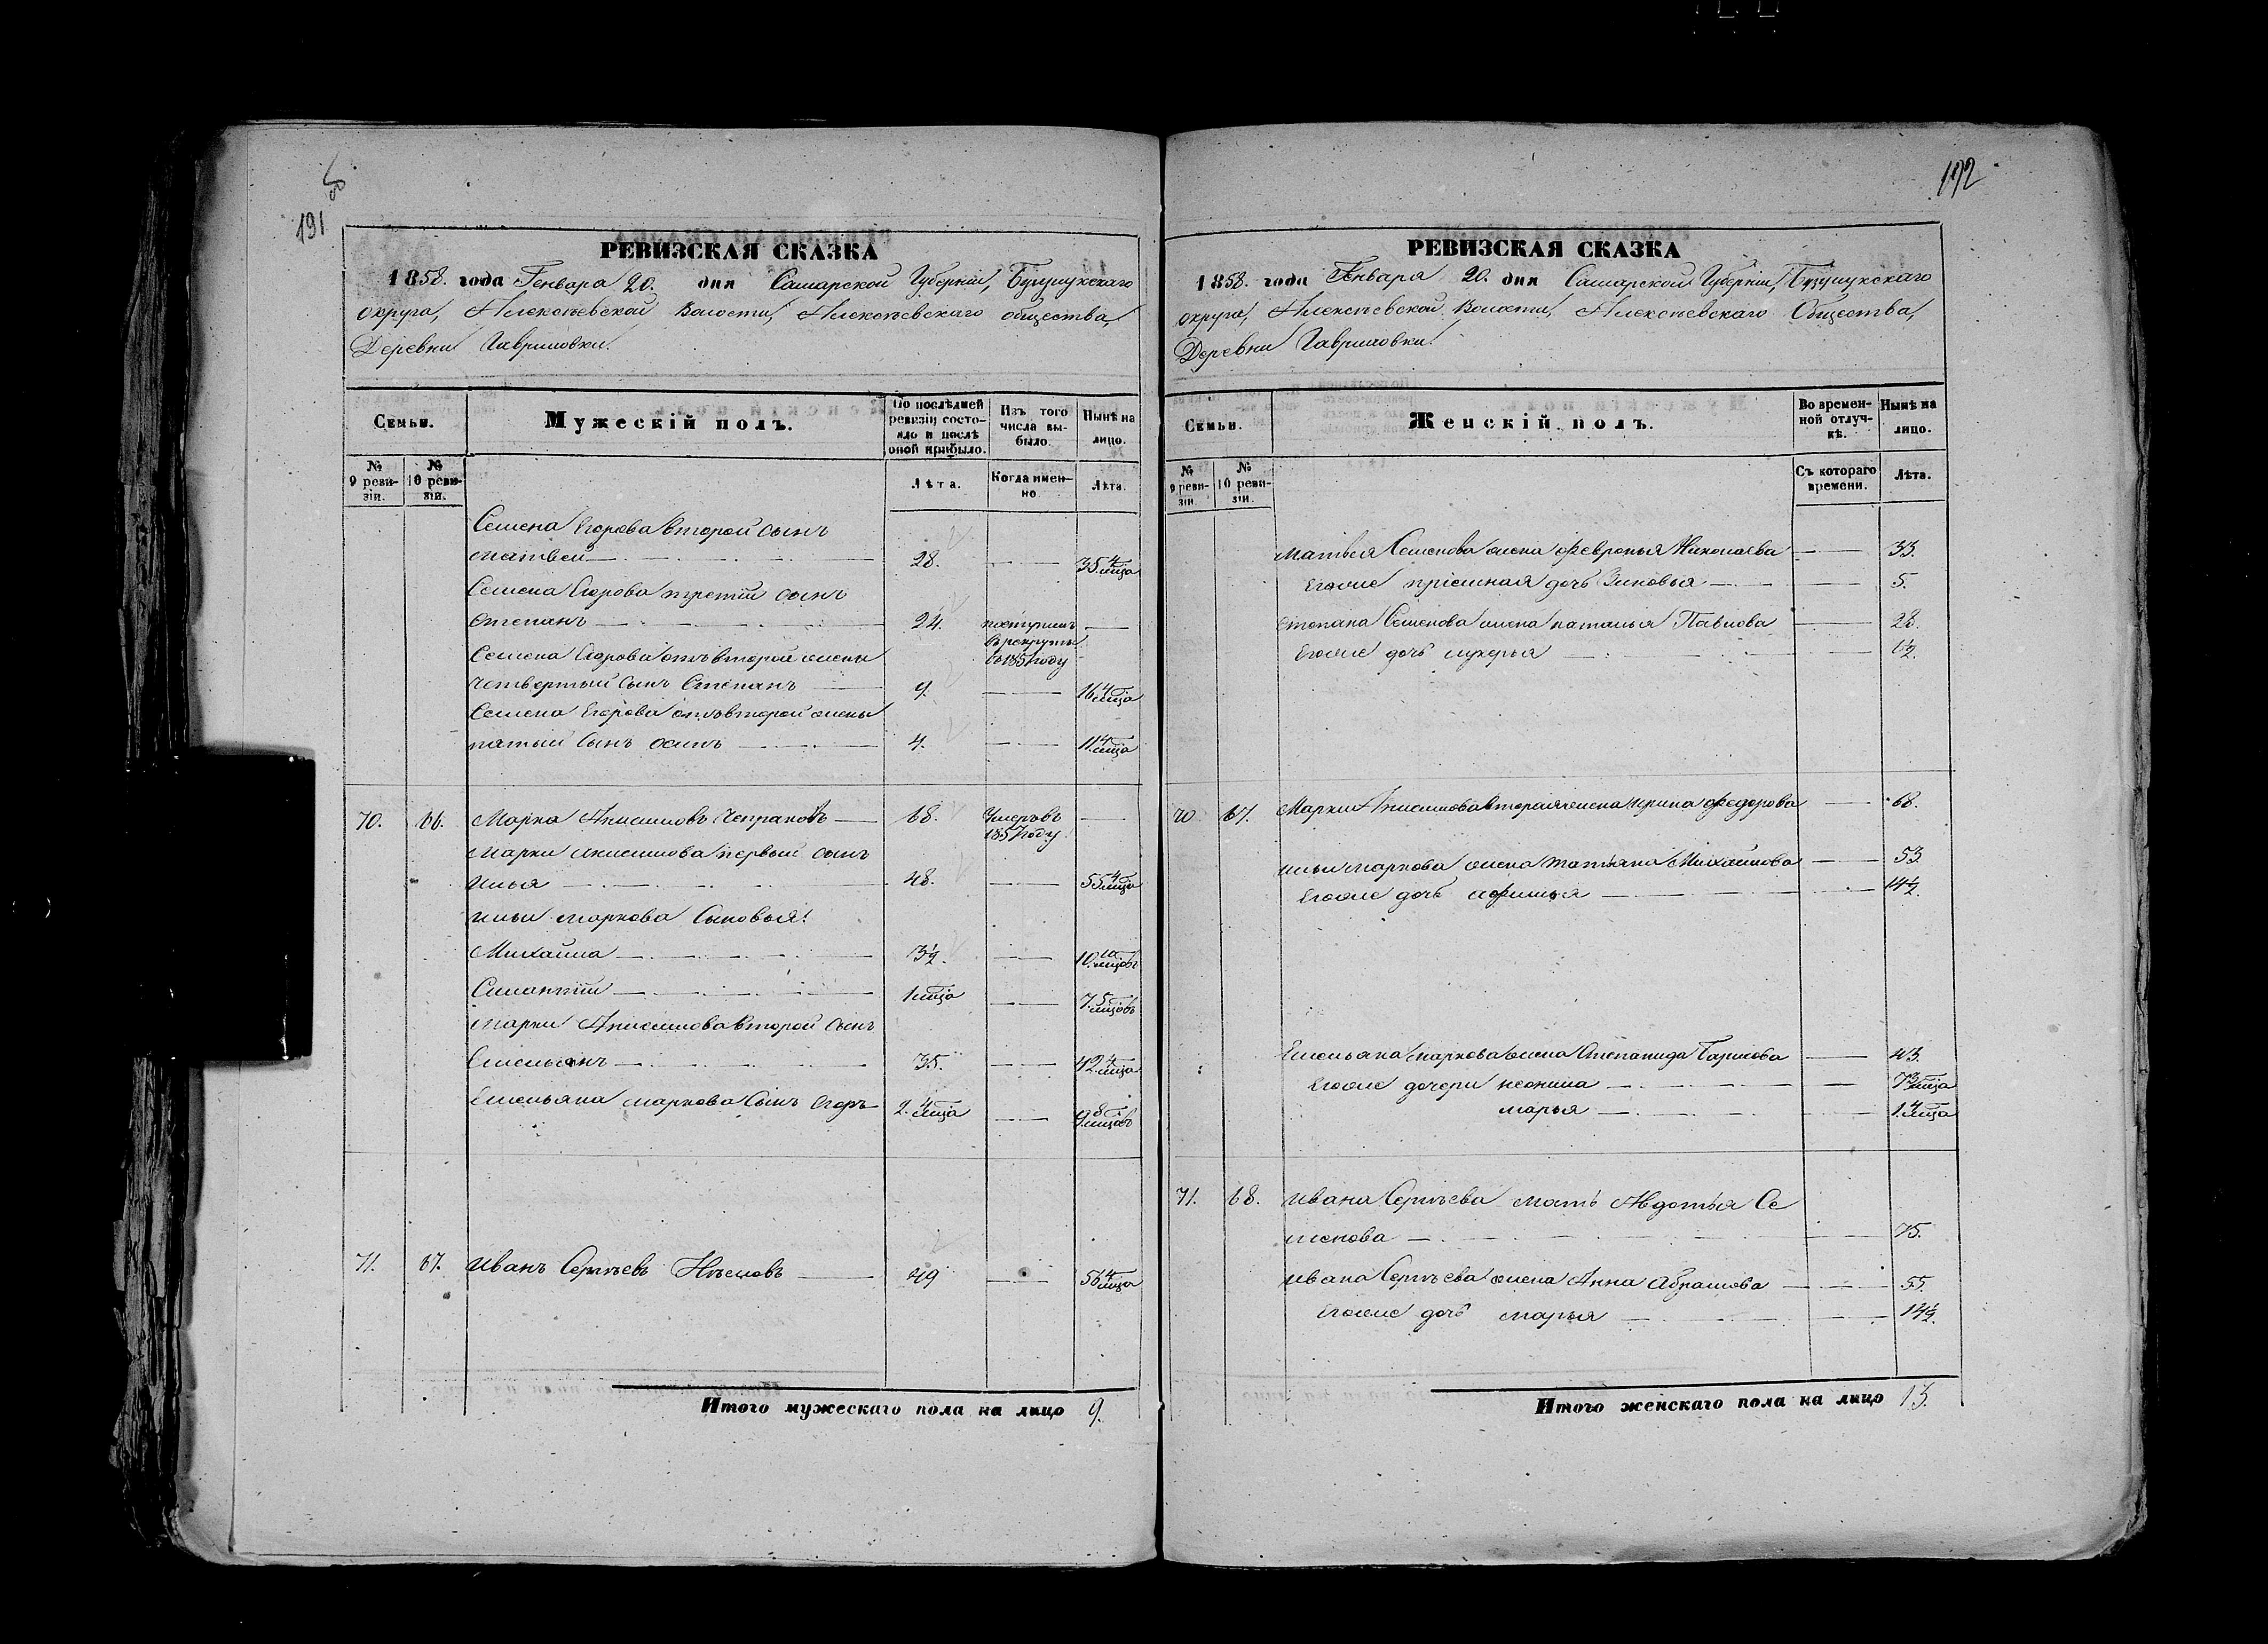 191
РЕВИЗСКАЯ СКАЗКА
1858. года Генваря 20. дня Самарской Губернии, Бузулукскаго
округа, Алексѣевской Волости, Алексѣевскаго общества,
Деревни Гавриловки.
Семьи. Мужескій полъ. По послѣдней ревизіи состояло и послѣ оной прибыло. Изъ того числа выбыло. Нынѣ на лицо.
№ 9 ревизіи. № 10 ревизіи. Лѣта. Когда именно Лѣта.
Семена Егорова второй сынъ
Матвей 28. 35 4 мца
Семена Егорова третій сынъ
Степанъ 24. поступилъ
въ рекруты
въ 1857 году
Семена Егорова отъ второй жены
четвертый сынъ Степанъ 9. 16 4 мца
Семена Егорова отъ второй жены
пятый сынъ Осипъ 4. 11 4 мца
70. 66. Марка Анисимовъ Чепраковъ 68. Умеръ въ
1857 году
Марки Анисимова первый сынъ
Илья 48. 55 4 мца
Ильи Маркова Сыновья:
Михайла 3½. 10. мцовъ
1 мца 7. 5 мцовъ
Марки Анисимова второй сынъ
Емельянъ 35. 42. 4 мца
Емельяна Маркова Сынъ Егоръ 2. 4 мца 9. 8 мцовъ
71. 67. Иванъ Сергѣевъ 49 56 4 мца
Итого мужескаго пола на лицо 9.
192
РЕВИЗСКАЯ СКАЗКА
1858. года Генваря 20. дня Самарской Губерніи, Бузулукскаго
округа, Алексѣевской Волости, Алексѣевскаго Общества,
Деревни Гавриловки.
Семьи. Женскій полъ. Во временной отлучкѣ. Нынѣ на лицо.
№ 9 ревизіи. № 10 ревизіи. Съ котораго времени. Лѣта.
Матвея Семенова жена Февронья Николаева 33.
Егоже пріемная дочь Зиновья 5.
Степана Семенова жена Наталья Павлова 28.
Егоже дочь Лукерья 1½.
70 67. Марки Анисимова вторая жена Ирина Федорова 68.
Ильи Маркова жена Татьяна Михайлова 53.
Егоже дочь Афимья 14½.
Емельяна Маркова жена Степанида 43.
Егоже дочери Неонила 7 3 мца
Марья 1. 4 мца
71. 68. Ивана Сергѣева мать Авдотья Се
менова 75.
Ивана Сергѣева жена Анна Абрамова 55.
Егоже дочь Марья 14½.
Итого женскаго пола на лицо 13.